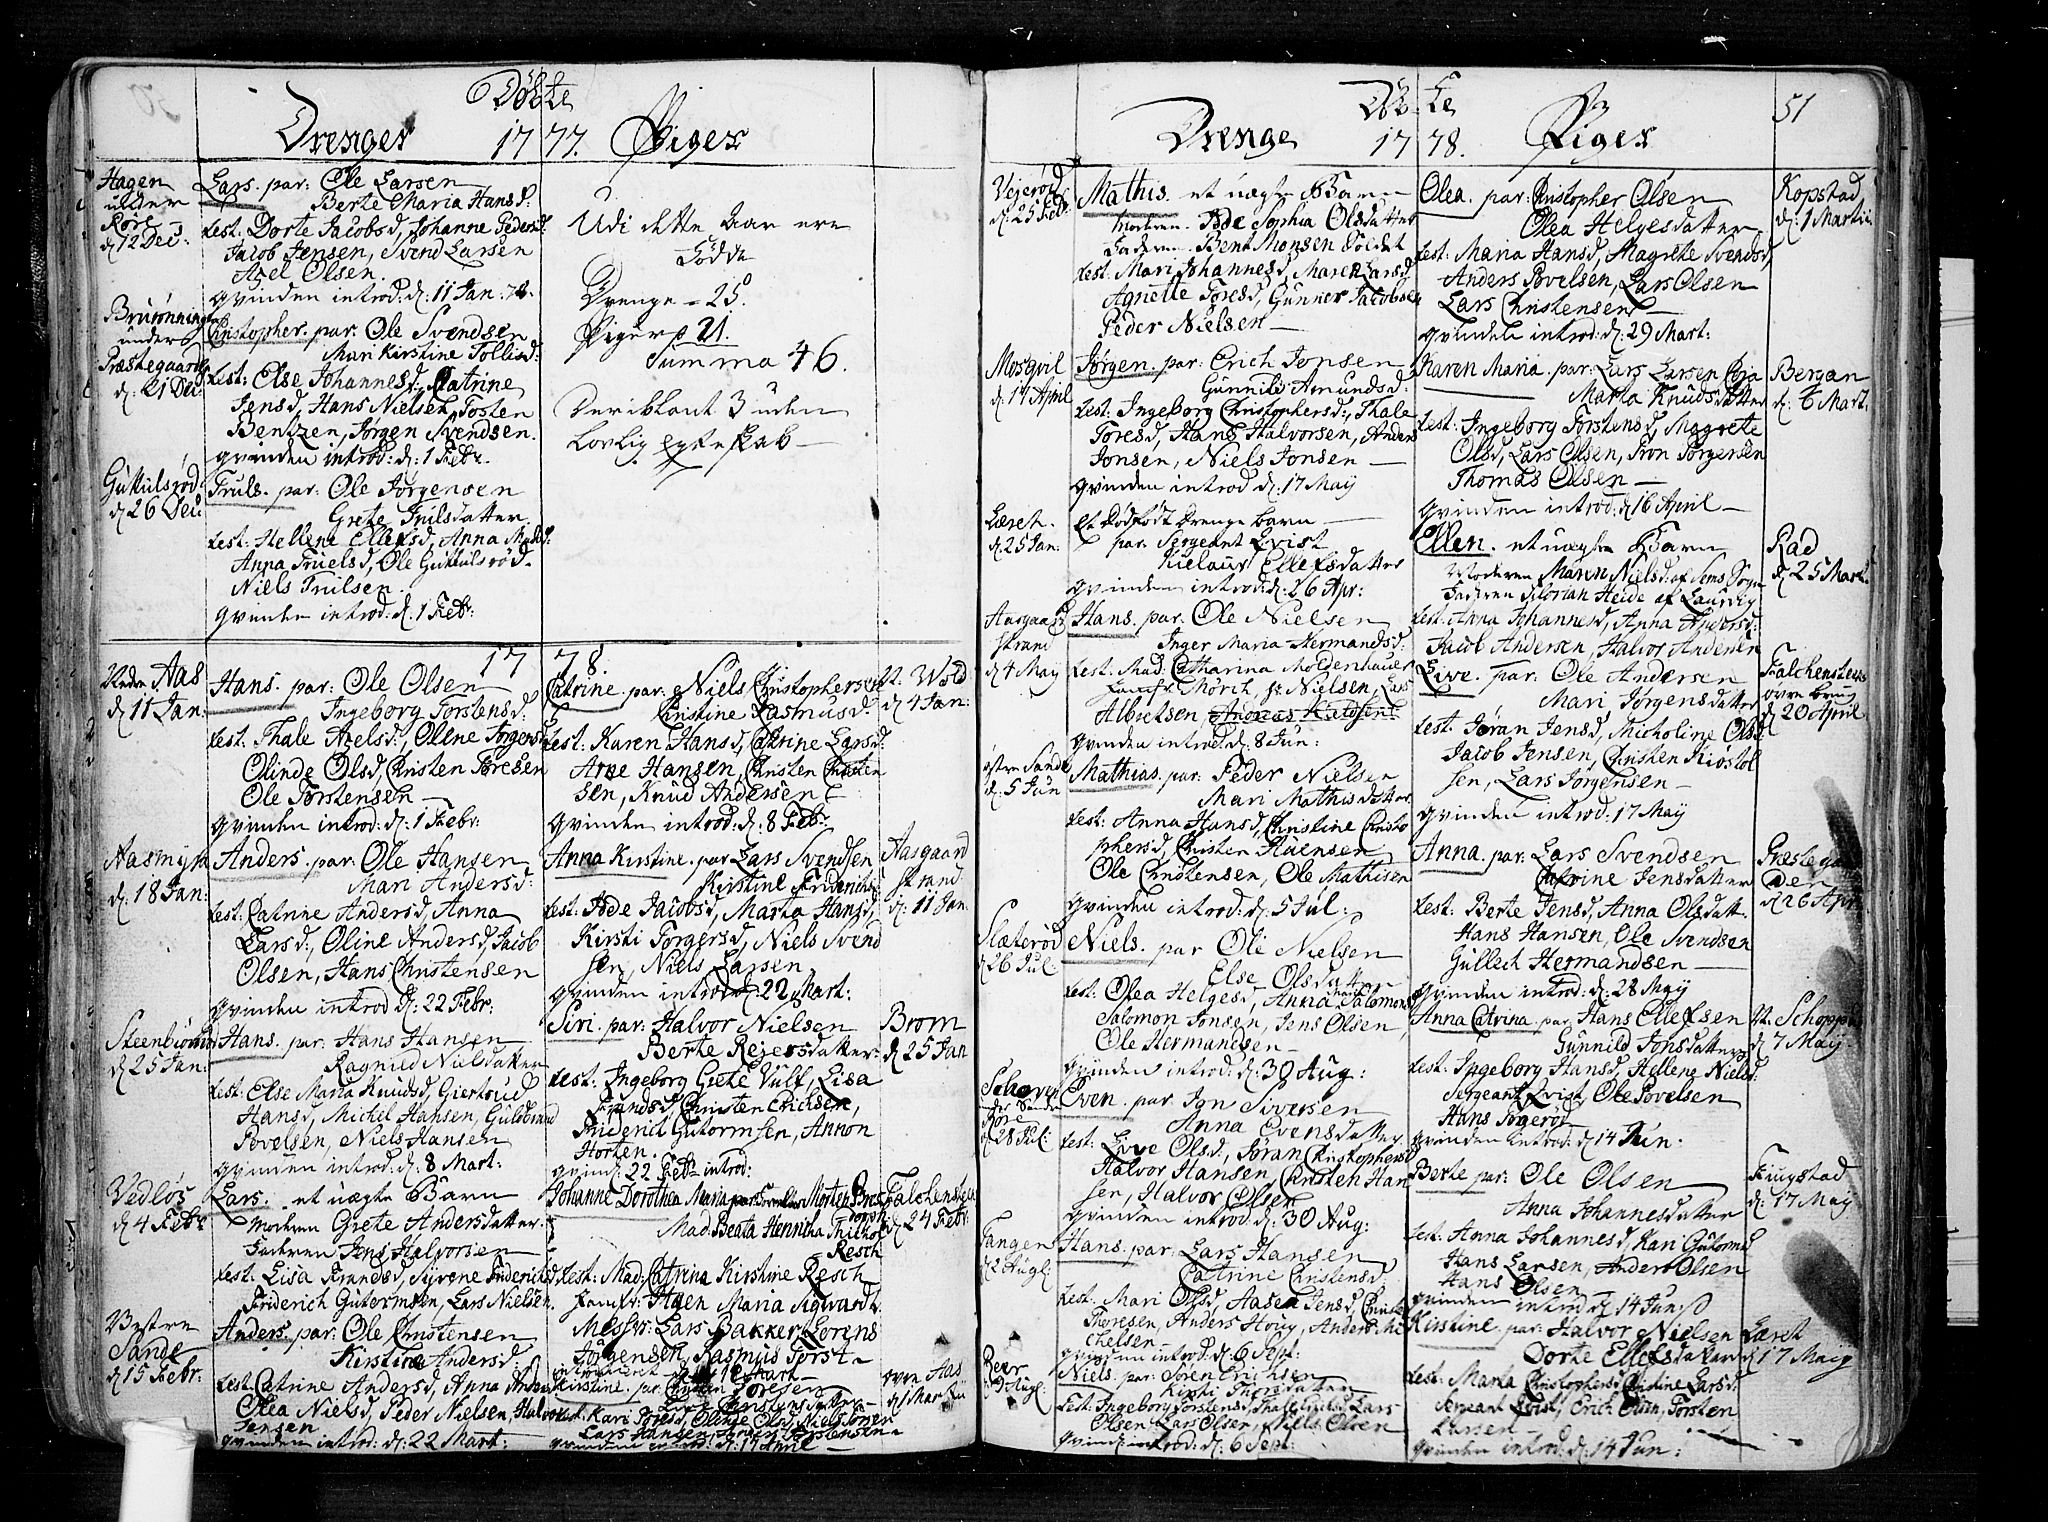 Döbte
Drenger 1777. Piger
Hagen
under
Röre
d: 12 Dec:
Lars. par: Ole Larsen
Berte Maria Hansd:
test: Dorte Jacobsd, Johanne Pedersd:
Jacob Jensen, Svend Larsen
Axel Olsen.
qvinden introd: d: 11 Jan: 78.
under
Præstegaard
d: 21 Dec:
Christopher. par: Ole Svendsen
Mari Kirstine Tollisd:
test: Else Johannesd:, Catrine
Jensd, Hans Nielsen, Tosten
Bentzen, Jørgen Svendsen.
qvinden introd: d: 1 Febr.
d 26 Dec
Truls. par: Ole Jörgensen
Grete Trulsdatter
test: Hellene Ellefsd, Anna
Anna Truelsd, Ole Gukkulsröd.
Niels Trulsen.
qvinden introd: d: 1 Febr:
Udi dette Aar ere
Födde
Drenge - 25.
Piger - 21.
Summa 46.
Deriblant 3 uden
Lovlig egteskab
1778.
Nedre Aas
d 11 Jan:
Hans. par: Ole Olsen
Ingeborg Torstensd:
test: Thale Axelsd:, Olene Jörgensd
Olinde Olsd, Christen Toresen
Ole Torstensen
qvinden introd: d: 1 Febr:
Aasmyra
d: 18 Jan:
Anders. par: Ole Hansen
Mari Andersd:
test: Catrine Andersd, Anna
Larsd:, Oline Andersd, Jacob
Olsen, Hans Christensen
qvinden introd d: 22 Febr:
d 25 Jan:
Hans. par: Hans Hansen
Ragnild Nielsdatter
test: Else Maria Knudsd, Giertrud
Hansd, Michel Hansen, Guldbrand
Povelsen, Niels Hansen
qvinden introd: d: 8 Mart:
Vedløs
d 4 Febr
Lars. et uægte Barn
Moderen Grete Andersdatter.
Faderen Jens Halvorsen
test: Lisa Frandsd, Syvene Friderichsd
Friderich Gutermsen, Lars Nielsen.
Vestre
Sande
d 15 Febr.
Anders. par: Ole Christensen
Kirstine Andersd:
test: Catrine Andersd, Anna
Olea Nielsd, Peder Nielsen, Halvor
Jensen
qvinden introd: d: 22 Mart:
Catrine. par: Niels Christophersen
Christine Rasmusd.
test: Karen Hansd, Catrine Larsd:
Arne Hansen, Christen Christen
sen, Knud Andersen
qvinden introd: d: 8 Febr.
N. Wold
d 4 Jan:
Anna Kirstine. par: Lars Svendsen
Kirstine Friderichsd
test: Ade Jacobsd, Marta Hansd,
Kirsti Torgersd, Niels Svend
sen, Niels Larsen
qvinden introd: 22 Mart:
Aasgaard
strand
d: 11 Jan.
Siri. par: Halvor Nielsen
Berte Rejersdatter:
test: Ingeborg Grete Wulf, Lisa
Frandsd, Christen Erichsen,
Friderich Gutormsen, Annon
Horten.
qvind: 22 Febr introd:
Brom
d 25 Jan
Johanne Dorothea Maria
Mad: Beata Henricha
Resch
test: Mad: Catrina Kirstine Resch
Jomfr: Itgen Maria Sigwardt
Messrs: Lars Bakker, Lorens
Jörgensen, Rasmus Torst
Falchensteen
d 24 Febr:
Kirstine. par: Christen Toresen
test: Kari Toresd, Olinde Olsd, Niels Toresen
Lars Hansen, Torstensen
qvinden introd: d: 17 April
övre Aas
Döb-te
51
Drenge 1778. Piger
d: 25 Febr
Mathis. et uægte Barn
Moderen. Ade Sophia Olsdatter
Faderen. Bent Monsen Soldat
test: Mari Johannesd, Maren Larsd,
Agnette Toresd, Gunner Jacobsen
Peder Nielsen
Mosqvil
d 17 April
Jørgen. par: Erich Jonsen
Gunnild Amundsd
test: Ingeborg Christophersd:, Thale
Toresd, Hans Halvorsen, Anders
Jonsen, Niels Jonsen
qvinden introd d: 17 Maij
Læret.
d: 25 Jan:
et dödfödt Drenge barn
par. Sergeant Qvist
Ellefsdatter
qvinden introd: d: 26 Apr:
Aasgaard
strand
d 4 Maij
Hans. par: Ole Nielsen
Inger Maria Hermandsd:
test: Mad. Catharina Moldenhauer
Jomfr. Mörch, Nielsen, Lars
Albretsen,
qvinden introd d: 8 Jun:
östre Sande
d: 5 Jun
Mathias. par: Peder Nielsen
Mari Mathisdatter
test: Anna Hansd, Christine Christo
phersd, Christen Hansen
Ole Christensen, Ole Mathisen
qvinden introd: d: 5 Jul:
Slæteröd
d 26 Jul:
Niels. par Ole Nielsen
Else Olsdatter
test: Olea Helgesd, Anna Salomonsd
Salomon Jonsen, Jens Olsen,
Ole Hermandsen
qvinden introd: d: 30 Aug:
Röre
d 28 Jul:
Even. par: Jon Siversen
Anna Evensdatter
test: Live Olsd, Jöran Christophersd
Halvor Hansen, Christen Han
sen, Halvor Olsen
qvinden introd: d: 30 Aug:
Tangen
d 2 Aug:
Hans. par: Lars Hansen
Catrine Christensd
test: Mari Olsd, Aasea Jensd, Christen
Thoresen, Anders Houg, Anders Mi
chelsen
qvinden introd: d: 6 Sept:
Niels. par: Søren Erichsen
Kirsti Thorsdatter
test: Ingeborg Torstensd, Lars
Olsen, Lars Olsen, Niels Olsen
qvinden introd: d: 6 Sept:
Olea. par: Christopher Olsen
Olea Helgesdatter
test: Maria Hansd, Magrete Svendsd,
Anders Povelsen, Lars Olsen
Lars Christensen
qvinden introd: d: 29 Mart:
Kopstad
d: 1 Martii
Karen Maria. par: Lars Larsen
Marta Knudsdatter
test: Ingeborg Torstensd, Magrete
Olsd, Lars Olsen, Tron Törgersen
Thomas Olsen
qvinden introd: d 16 April
Bergan
d: 6 Mart.
Ellen. et uægte Barn
Moderen Maren Nielsd: af Sems Sogn
Faderen Florian Heide af Laurvig
test: Anna Johannesd, Anna Andersd:
Jacob Andersen, Halvor Andersen
Rad
d 25 Mart
Live. par: Ole Andersen
Mari Jørgensdatter
test: Jøran Jensd, Micholine Olsd
Jacob Jensen, Christen Kiöstol
sen, Lars Jørgensen
qvinden introd: 17 Maij
Falchensteen
övre brug
d 20 April
Anna. par: Lars Svendsen
Catrine Jensdatter
test: Berte Jensd, Anna Olsdatt.
Hans Hansen, Ole Svendsen
Gullech Hermandsen
qvinden introd: d: 28 Maij
Præstegaar
den
d 26 Apr:
Anna Catrina par: Hans Ellefsen
Gunnild Jonsdatter
test: Ingeborg Hansd, Hellene Nielsd:
Sergeant Qvist, Ole Povelsen
Hans Jørgeröd
qvinden introd: d 14 Jun:
N. Schoppum
d 7 Maij
Berte par: Ole Olsen
Anna Johannesdatter
test: Anna Johannesd, Kari Gutormsd
Hans Larsen, Anders Olsen
Hans Olsen
qvinden introd d: 14 Jun:
Fiugstad
d 17 Maij
Kirstine. par: Halvor Nielsen
Dorte Ellefsdatter
test: Marta Christophersd, Christine Larsd:
Sergeant Qvist, Erich Olsen, Torsten
Larsen
qvinden introd: d: 14 Jun:
Læret
d 17 Maij